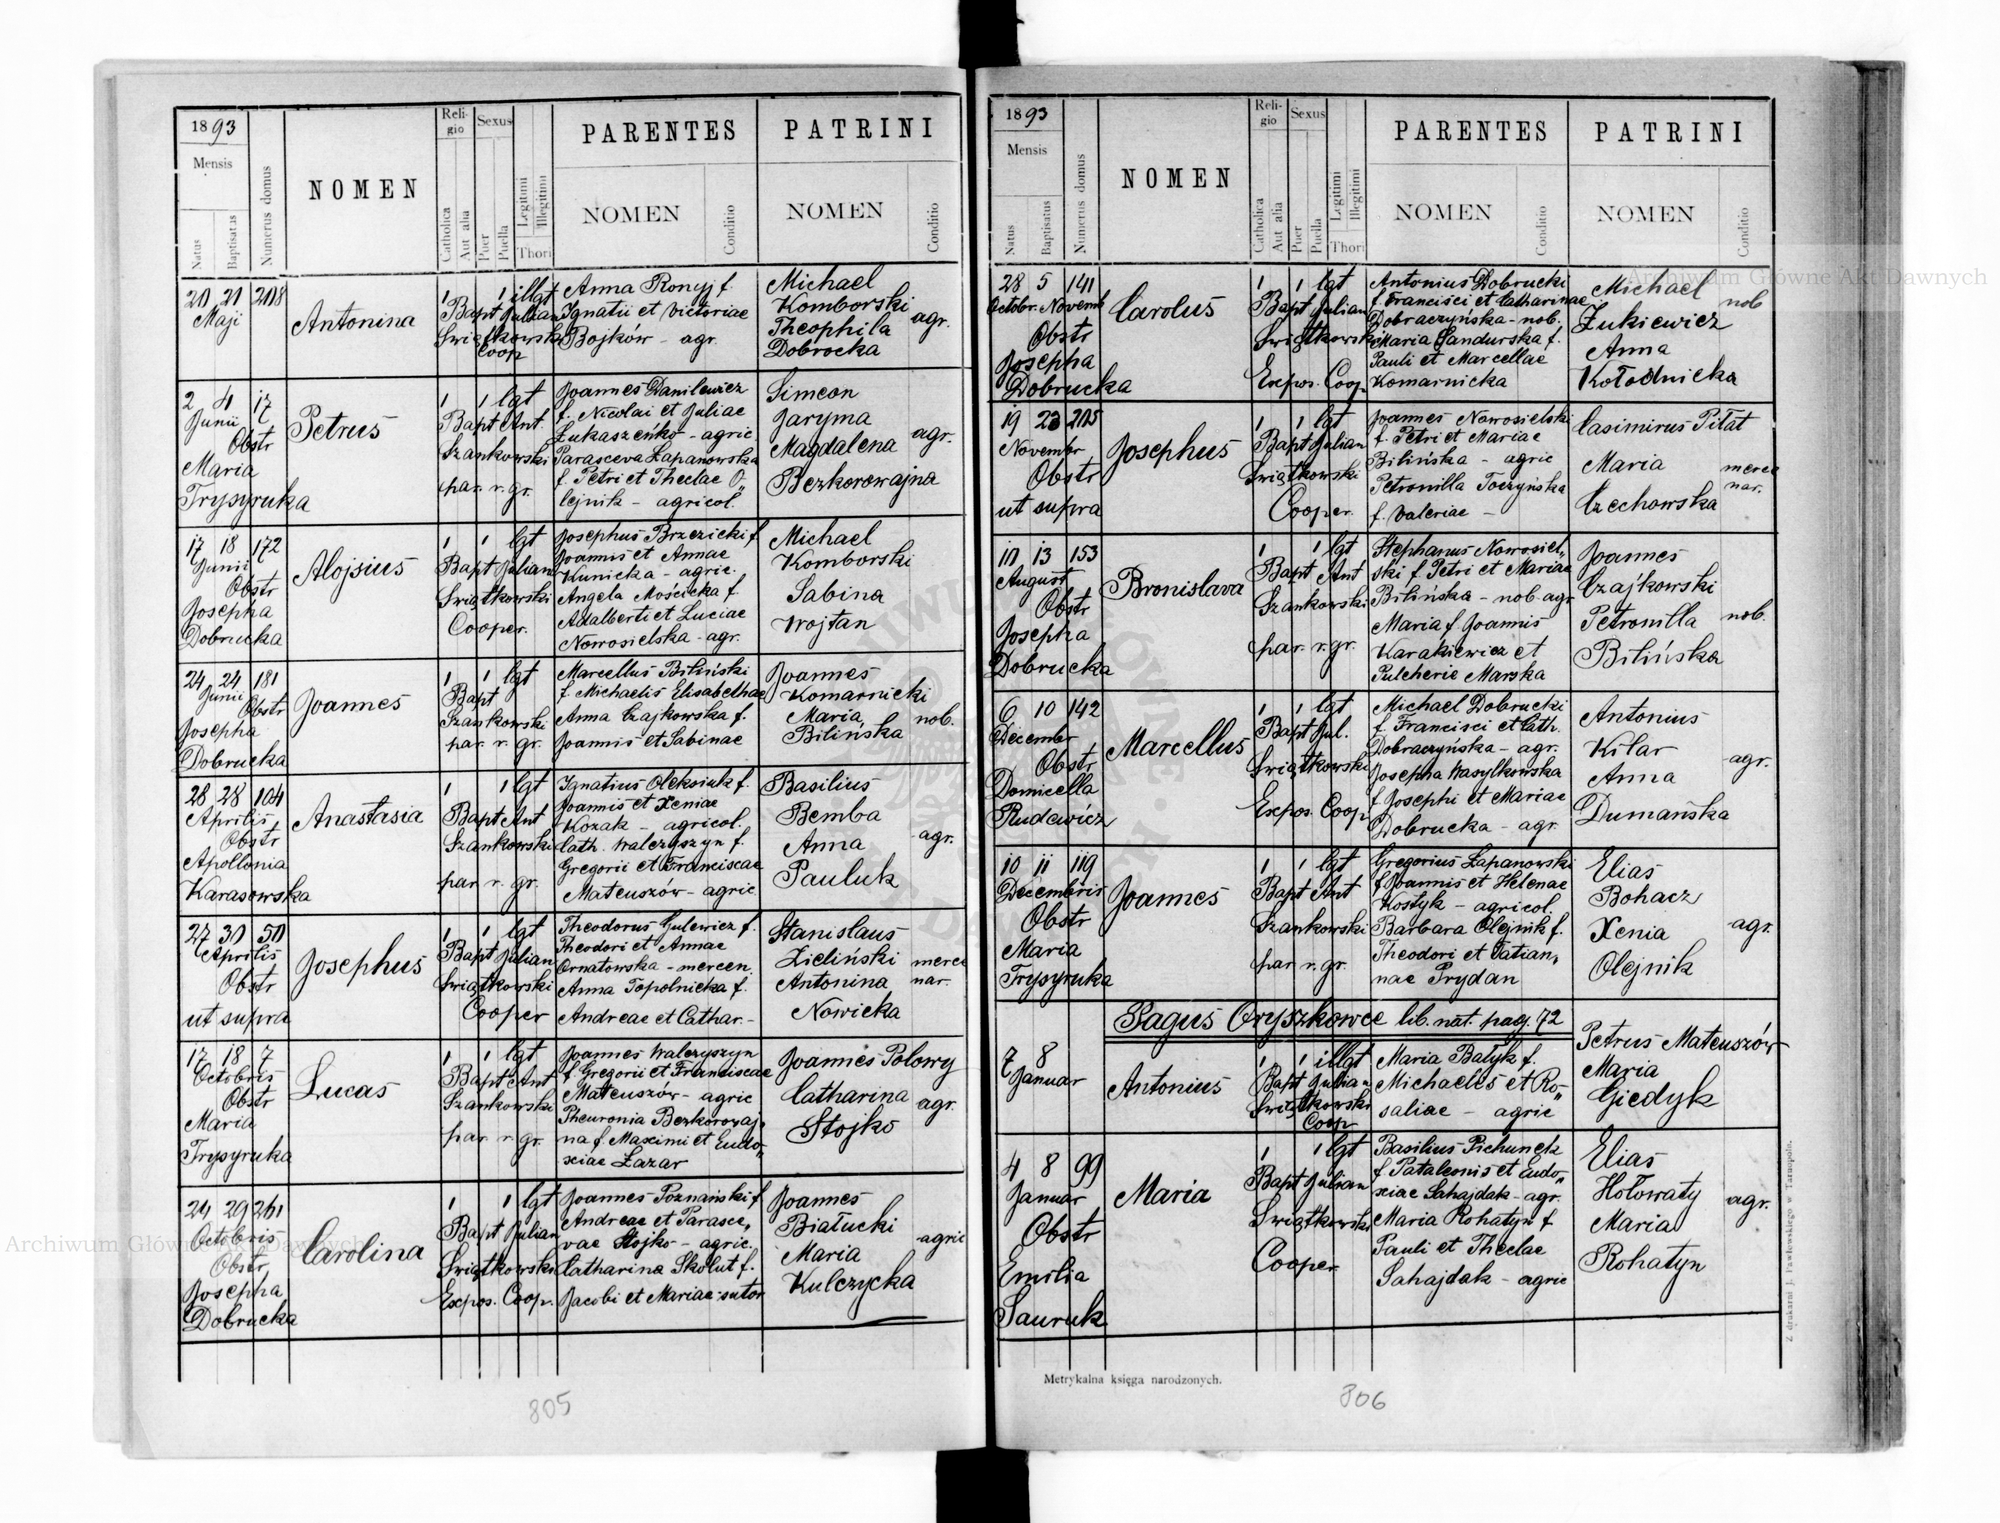 1893
Mensis
Natus
Baptisatus
Numerus domus
NOMEN
Religio
Catholica
Aut alia
Sexus
Puer
Puella
Legitimi
Illegitimi
Thori
PARENTES
NOMEN
Conditio
PATRINI
NOMEN
Conditio
20 21 208
Maji
Antonina
1 1 illgt
Bapt Julian
Świątkowski
Coop
Anna Ronyj f.
Ignatii et Victoriae
Bojków - agr.
Michael
Komborski
Theophila
Dobrocka
agr.
2 4 17
Junii
Obstr
Maria
Trysyruka
Petrus
1 1 lgt
Bapt Ant.
Szankowski
par. r. gr.
Joannes Danilewicz
f. Nicolai et Juliae
Łukaszeńko - agric.
Parasceva Łapanowska
f. Petri et Theclae O„
lejnik - agricol.
Simeon
Jaryma
Magdalena
Bezkorowajna
agr.
17 18 172
Junii
Obstr
Josepha
Dobrucka
Alojsius
1 1 lgt
Bapt Julian
Świątkowski
Cooper.
Josephus Brzezicki f.
Joannis et Annae
Kunicka - agric.
Angela Mościcka f.
Adalberti et Luciae
Nowosielska - agr.
Michael
Komborski
Sabina
Wojtan
24 24 181
Junii
Obstr
Josepha
Dobrucka
Joannes
1 1 lgt
Bapt
Szankowski
par. r. gr.
Marcellus Biliński
f. Michaelis Elisabethae
Anna Czajkowska f.
Joannis et Sabinae
Joannes
Komarnicki
Maria
Bilińska
nob.
28 28 104
Aprilis
Obstr
Apollonia
Karasowska
Anastasia
1 1 lgt
Bapt Ant
Szankowski
par. r. gr.
Ignatius Oleksiuk f.
Joannis et Xeniae
Kozak - agricol.
Cath. Walczyszyn f.
Gregorii et Franciscae
Mateuszów - agric
Basilius
Bemba
Anna
Pauluk
agr.
27 30 50
Aprilis
Obstr
ut supra
Josephus
1 1 lgt
Bapt Julian
Świątkowski
Cooper
Theodorus Gulewicz f.
Theodori et Annae
Ornatowska - mercen.
Anna Topolnicka f.
Andreae et Cathar.-
Stanislaus
Zieliński
Antonina
Nowicka
merce
nar.
17 18 7
Octobris
Obstr
Maria
Trysyruka
Lucas
1 1 lgt
Bapt Ant
Szankowski
par r gr.
Joannes Walczyszyn
f. Gregorii et Franciscae
Mateuszów - agric
Pheuronia Bezkorowaj„
na f. Maximi et Eudo„
xiae Łazar
Joannes Polowy
Catharina
Stojko
agr.
24 29 261
Octobris
Obstr
Josepha
Dobrucka
Carolina
1 1 lgt
Bapt Julian
Świątkowski
Expos. Coop.
Joannes Poznański f.
Andreae et Parasce„
vae Stojko - agric.
Catharina Skolut f.
Jacobi et Mariae - sutor
Joannes
Białucki
Maria
Kulczycka
agric
805
1893
Mensis
Natus
Baptisatus
Numerus domus
NOMEN
Religio
Catholica
Aut alia
Sexus
Puer
Puella
Legitimi
Illegitimi
Thori
PARENTES
NOMEN
Conditio
PATRINI
NOMEN
Conditio
28 5 141
Octobr. Novemb
Obstr
Josepha
Dobrucka
Carolus
1 1 lgt
Bapt Julian
Świątkowski
Expos. Coop.
Antonius Dobrucki
f. Francisci et Catharinae
Dobraczyńska - nob.
Maria Sandurska f.
Pauli et Marcellae
Komarnicka
Michael
Żukiewicz
Anna
Kołodnicka
nob
19 23 205
Novembr
Obstr
ut supra
Josephus
1 1 lgt
Bapt Julian
Świątkowski
Cooper.
Joannes Nowosielski
f. Petri et Mariae
Bilińska - agric
Petronilla Toczyńska
f. Valeriae -
Casimirus Piłat
Maria
Czechowska
merce
nar.
10 13 153
August
Obstr
Josepha
Dobrucka
Bronislava
1 1 lgt
Bapt Ant
Szankowski
par. r. gr.
Stephanus Nowosiel„
ski f Petri et Mariae
Bilińska - nob. agr
Maria f. Joannis
Karakiewicz et
Pulcherie Marska
Joannes
Czajkowski
Petronilla
Bilińska
nob.
6 10 142
Decembr
Obstr
Domicella
Rudawicz
Marcellus
1 1 lgt
Bapt Jul.
Świątkowski
Expos. Coop
Michael Dobrucki
f. Francisci et Cath.
Dobraczyńska - agr.
Josepha Wasylkowska
f Josephi et Mariae
Dobrucka - agr.
Antonius
Kilar
Anna
Dumańska
agr.
10 11 119
Decembris
Obstr
Maria
Trysyruka
Joannes
1 1 lgt
Bapt Ant
Szankowski
par r. gr.
Gregorius Łapanowski
f Joannis et Helenae
Kostyk - agricol.
Barbara Olejnik f.
Theodori et Tatian„
nae Prydan
Elias
Bohacz
Xenia
Olejnik
agr.
Pagus Oryszkowce lib. nat. pag. 72
7 8
Januar
Antonius
1 1 illgt
Bapt Julian
Świątkowski
Coop
Maria Bałyk f.
Michaelis et Ro„
saliae - agric
Petrus Mateuszów
Maria
Giedyk
4 8 99
Januar
Obstr
Emilia
Sauruk
Maria
1 1 lgt
Bapt Julian
Świątkowski
Cooper
Basilius Pichuneck
f Pataleonis et Eudo„
xiae Sahajdak - agr.
Maria Rohatyn f
Pauli et Theclae
Sahajdak - agric
Elias
Hołowaty
Maria
Rohatyn
agr.
Metrykalna księga narodzonych.
806
Z drukarni J. Pawłowskiego w Tarnopolu.
Archiwum Główne Akt Dawnych
Archiwum Główne Akt Dawnych